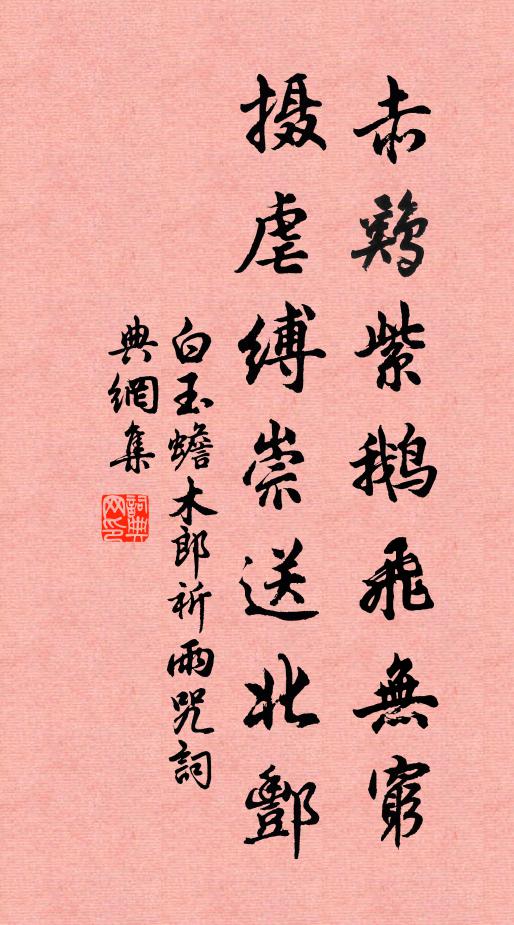 赤鷄紫鵝飛無窮
摄虐縛崇送北酆
白玉蟾木郎祈雨咒詞
典網集
詞典网印